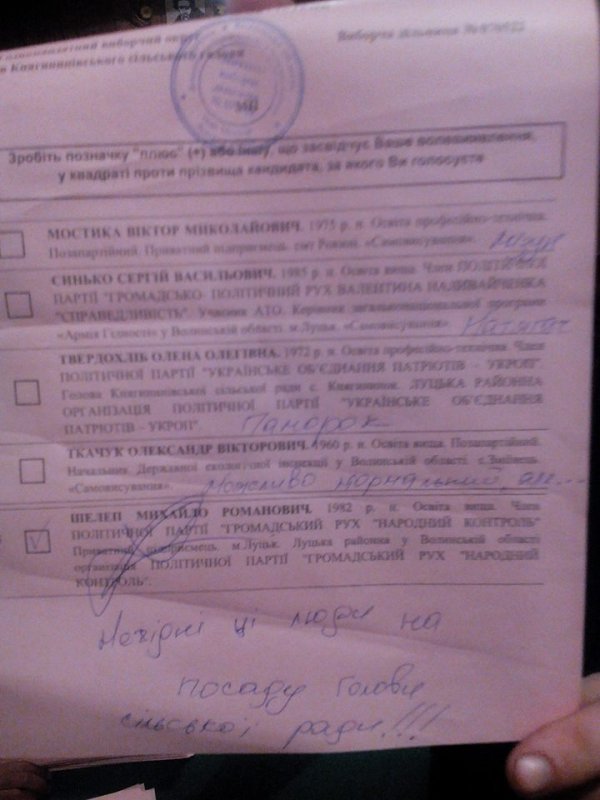 Одномандатний виборчий округ
Княгининівського сільського голови
Виборча дільниця
Зробіть позначку "плюс" (+) або іншу, що засвідчує Ваше волевиявлення,
у квадраті проти прізвища кандидата, за якого Ви голосуєте
МОСТИКА ВІКТОР МИКОЛАЙОВИЧ. 1975 р. н. Освіта професійно-технічна.
Позапартійний. Приватний підприємець. смт Рокині. «Самовисування».
СИНЬКО СЕРГІЙ ВАСИЛЬОВИЧ. 1985 р. н. Освіта вища. Член ПОЛІТИЧНА
ПАРТІЇ "ГРОМАДСЬКО- ПОЛІТИЧНИЙ РУХ ВАЛЕНТИНА НАЛИВАЙЧЕНКА
"СПРАВЕДЛИВІСТЬ". Учасник АТО. Керівник загальнонаціональної програми
у Волинській області. м.Луцьк. «Самовисування».
ТВЕРДОХЛІБ ОЛЕНА ОЛЕГІВНА. 1972 р. н. Освіта професійно-технічна. Член
ПОЛІТИЧНОЇ ПАРТІЇ "УКРАЇНСЬКЕ ОБ'ЄДНАННЯ ПАТРІОТІВ - УКРОП".
Голова Княгининівської сільської ради с. Княгининок. ЛУЦЬКА РАЙОННА
ОРГАНІЗАЦІЯ ПОЛІТИЧНОЇ ПАРТІЇ "УКРАЇНСЬКЕ ОБ'ЄДНАННЯ
ПАТРІОТІВ - УКРОП".
ТКАЧУК ОЛЕКСАНДР ВІКТОРОВИЧ. 1960 р. н. Освіта вища. Позапартійний.
Начальник Державної екологічної інспекції у Волинській області.
«Самовисування». Можливо нормальний, але...
ШЕЛЕП МИХАЙЛО РОМАНОВИЧ. 1982 р. н. Освіта вища. Член
ПОЛІТИЧНОЇ ПАРТІЇ "ГРОМАДСЬКИЙ РУХ "НАРОДНИЙ КОНТРОЛЬ"
Приватний підприємець. м.Луцьк. Луцька районна у Волинській області
організація ПОЛІТИЧНОЇ ПАРТІЇ "ГРОМАДСЬКИЙ РУХ "НАРОДНИЙ
КОНТРОЛЬ".
Негідні ці люди на
посаду голови
сільської ради!!!